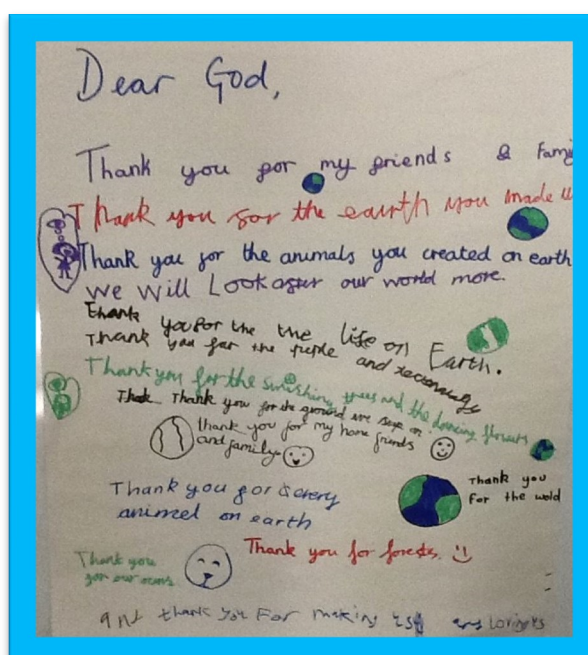 Dear God,
Thank you for my friends & Fami
Thank you for the earth you made
Thank you for the animals you created on earth
we will Look after our world more.
thank you for the the life on Earth.
Thank you for the people and
Thank you for the sunshing trees and the dancing flowers
Thank you for the ground we on
thank you for my home friends
and family
Thank you
for the wold
Thank you for every
animel on earth
Thank you for forests.
Thank you
for our
and thank you For making us loving us